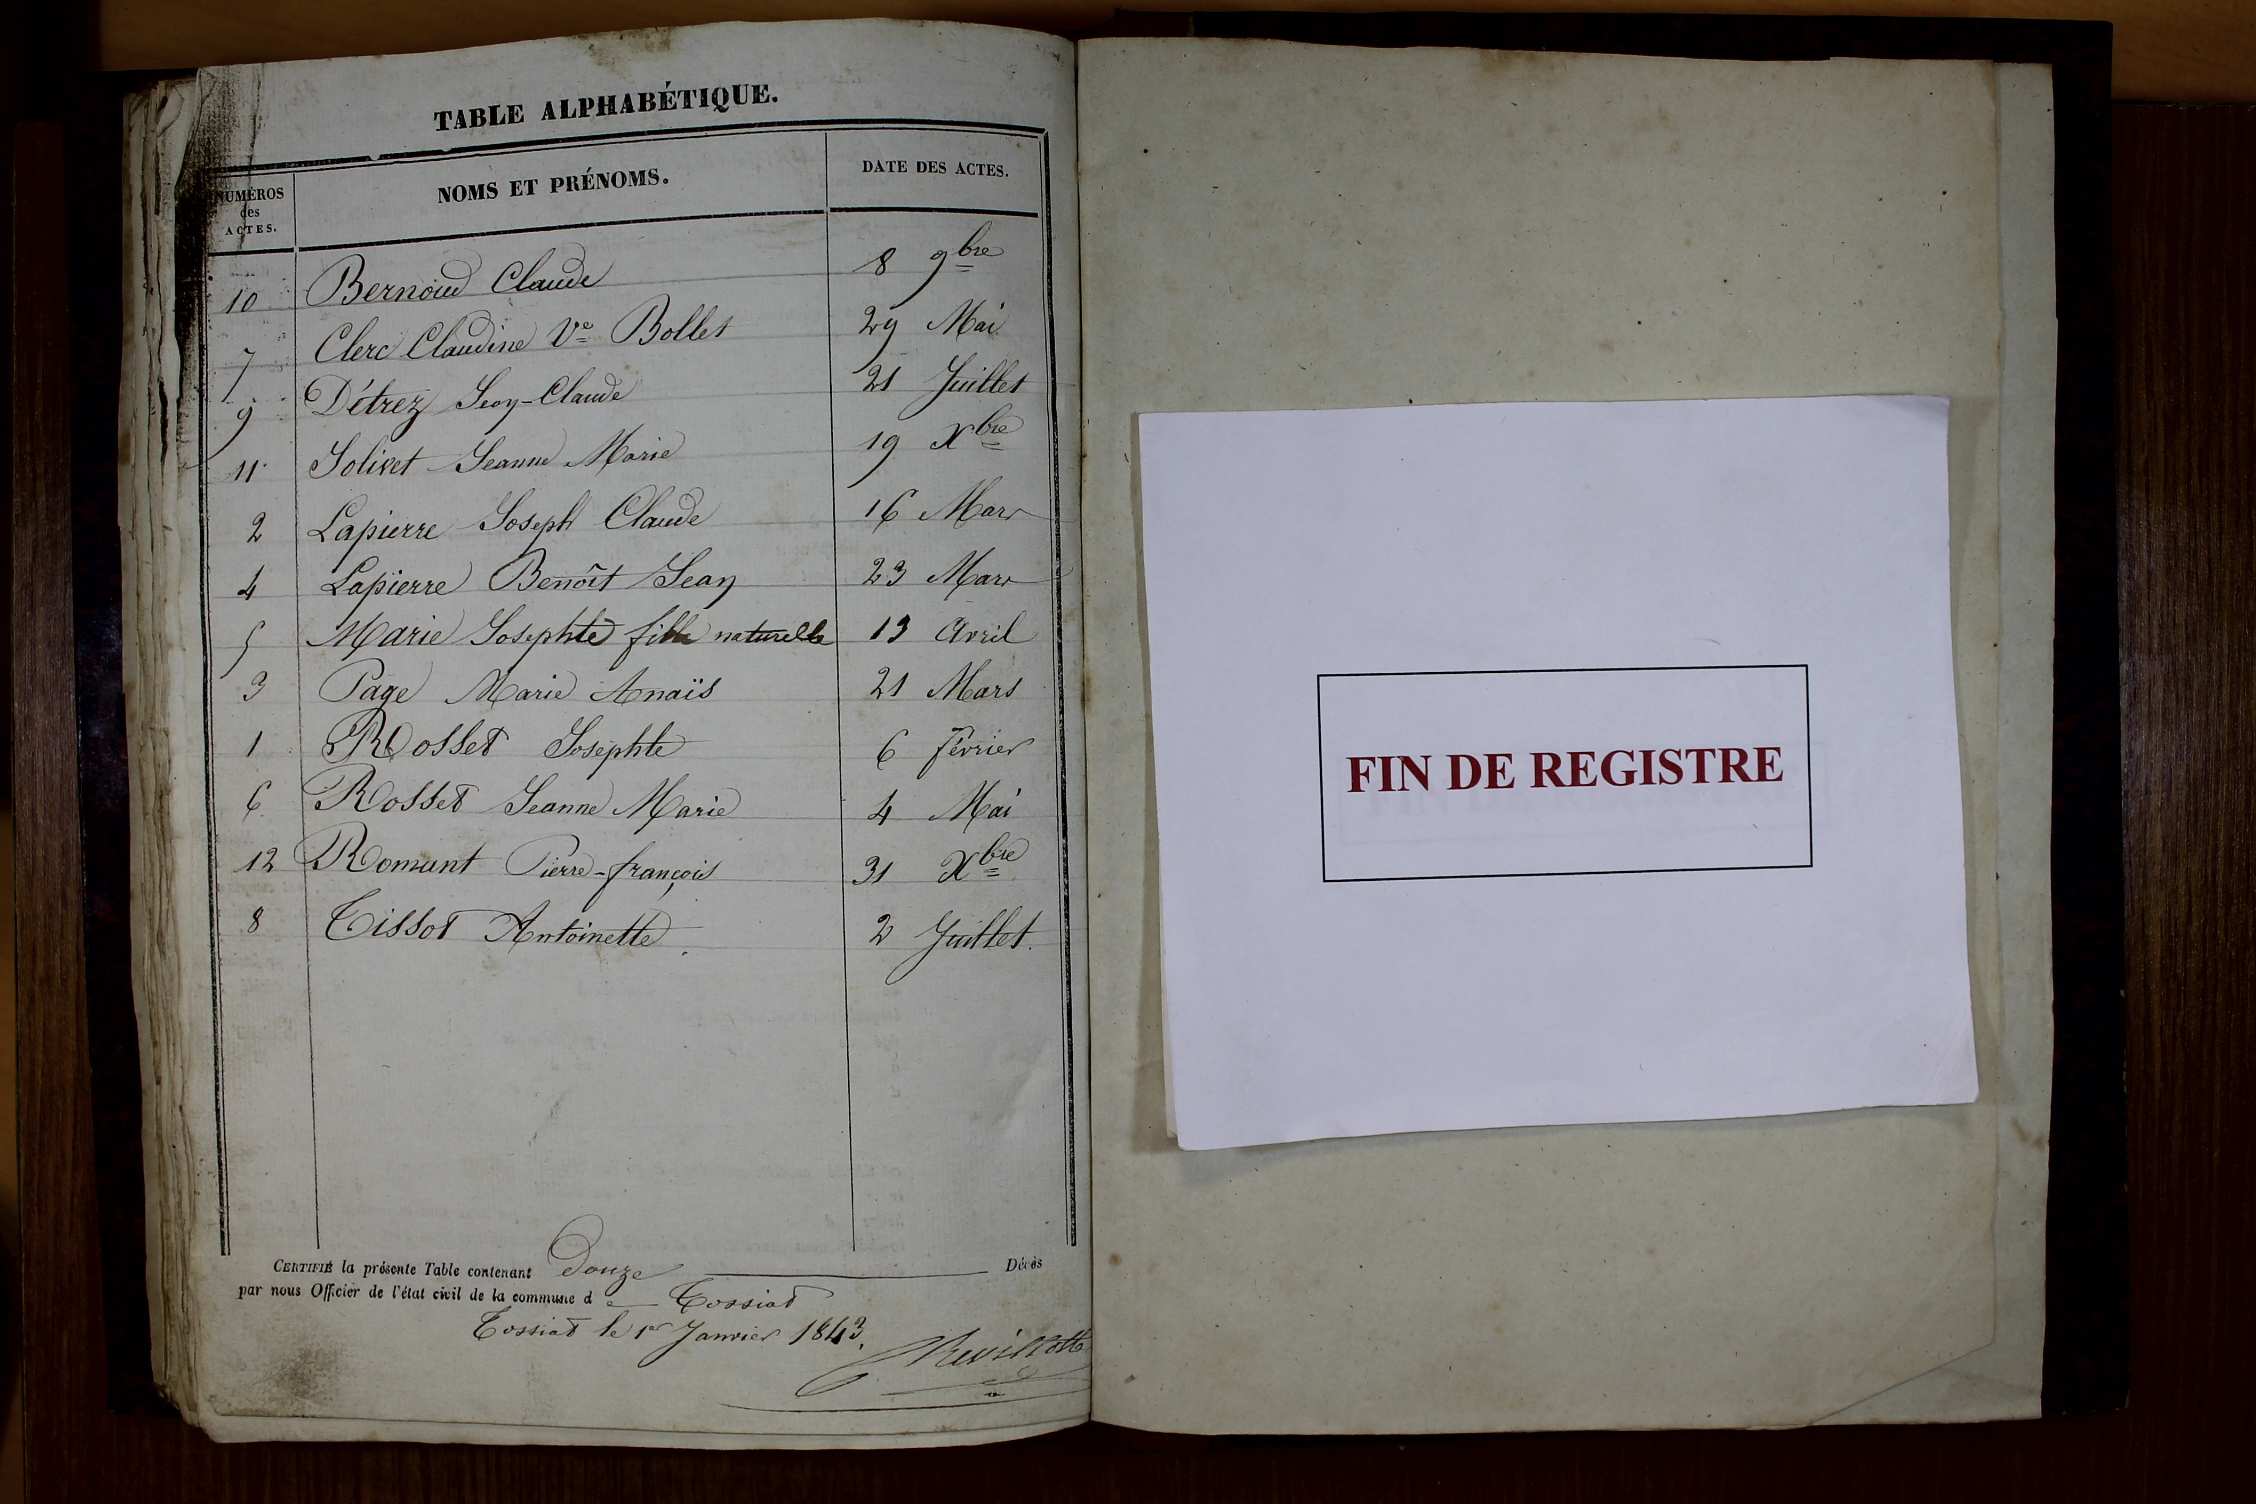 TABLE ALPHABÉTIQUE.
NUMÉROS des ACTES. NOMS ET PRÉNOMS. DATE DES ACTES.
10 Bernoud Claude 8 9bre
7 Clerc Claudine Ve Bollet 29 Mai
9 Détrez Jean-Claude 21 Juillet
11 Jolivet Jeanne Marie 19 Xbre
2 Lapierre Joseph Claude 16 Mars
4 Lapierre Benoît Jean 23 Mars
5 Marie Josephte fille naturelle 13 Avril
3 Page Marie Anaïs 21 Mars
1 Rosset Josephte 6 Février
6 Rosset Jeanne Marie 4 Mai
12 Romant Pierre-françois 31 Xbre
8 Tissot Antoinette 2 Juillet.
CERTIFIÉ la présente Table contenant Douze Décès
par nous Officier de l'état civil de la commune de Tossiat
Tossiat le 1er Janvier 1843.
FIN DE REGISTRE